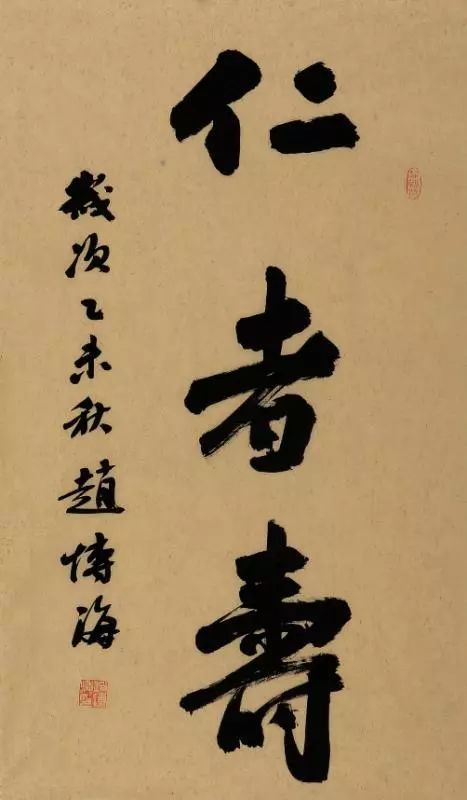 仁者壽
歲次乙未秋趙博海